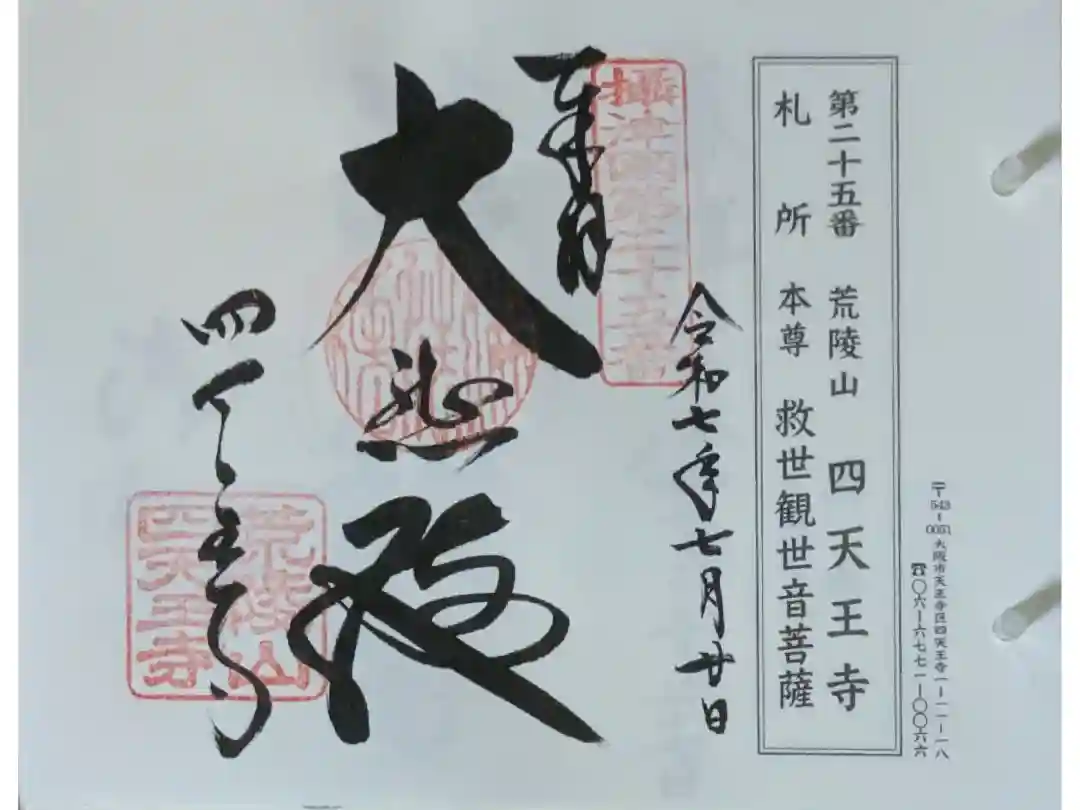 〒543-0051 大阪市天王寺区四天王寺一-一一-一八
☎〇六-六七七一-〇〇六六
第二十五番 荒陵山 四天王寺
札所 本尊 救世観世音菩薩
攝津国第二十五番
奉拝
令和七年七月廿日
大悲殿
四天王寺
荒陵山
四天王寺